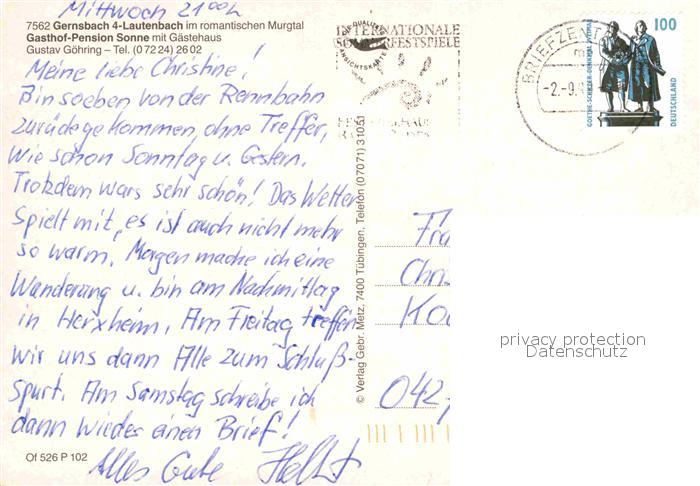 Mittwoch 21ooh
7562 Gernsbach 4-Lautenbach im romantischen Murgtal
Gasthof-Pension Sonne mit Gästehaus
Gustav Göhring – Tel. (07224) 2602
Meine liebe Christine!
Bin soeben von der Rennbahn
zurückgekommen, ohne Treffer,
wie schon Sonntag u. Gestern.
Trotzdem wars sehr schön! Das Wetter
spielt mit, es ist auch nicht mehr
so warm. Morgen mache ich eine
Wanderung u. bin am Nachmittag
in Herxheim. Am Freitag treffen
wir uns dann Alle zum Schluß-
spurt. Am Samstag schreibe ich
dann wieder einen Brief!
Alles Gute
Of 526 P 102
© Verlag Gebr. Metz, 7400 Tübingen, Telefon (07071) 31051
INTERNATIONALE
ANSICHTSKARTE
BRIEFZENT
-2.-9.
100
GOETHE-SCHILLER-DENKMAL
DEUTSCHLAND
Fra
Chr
042
privacy protection
Datenschutz